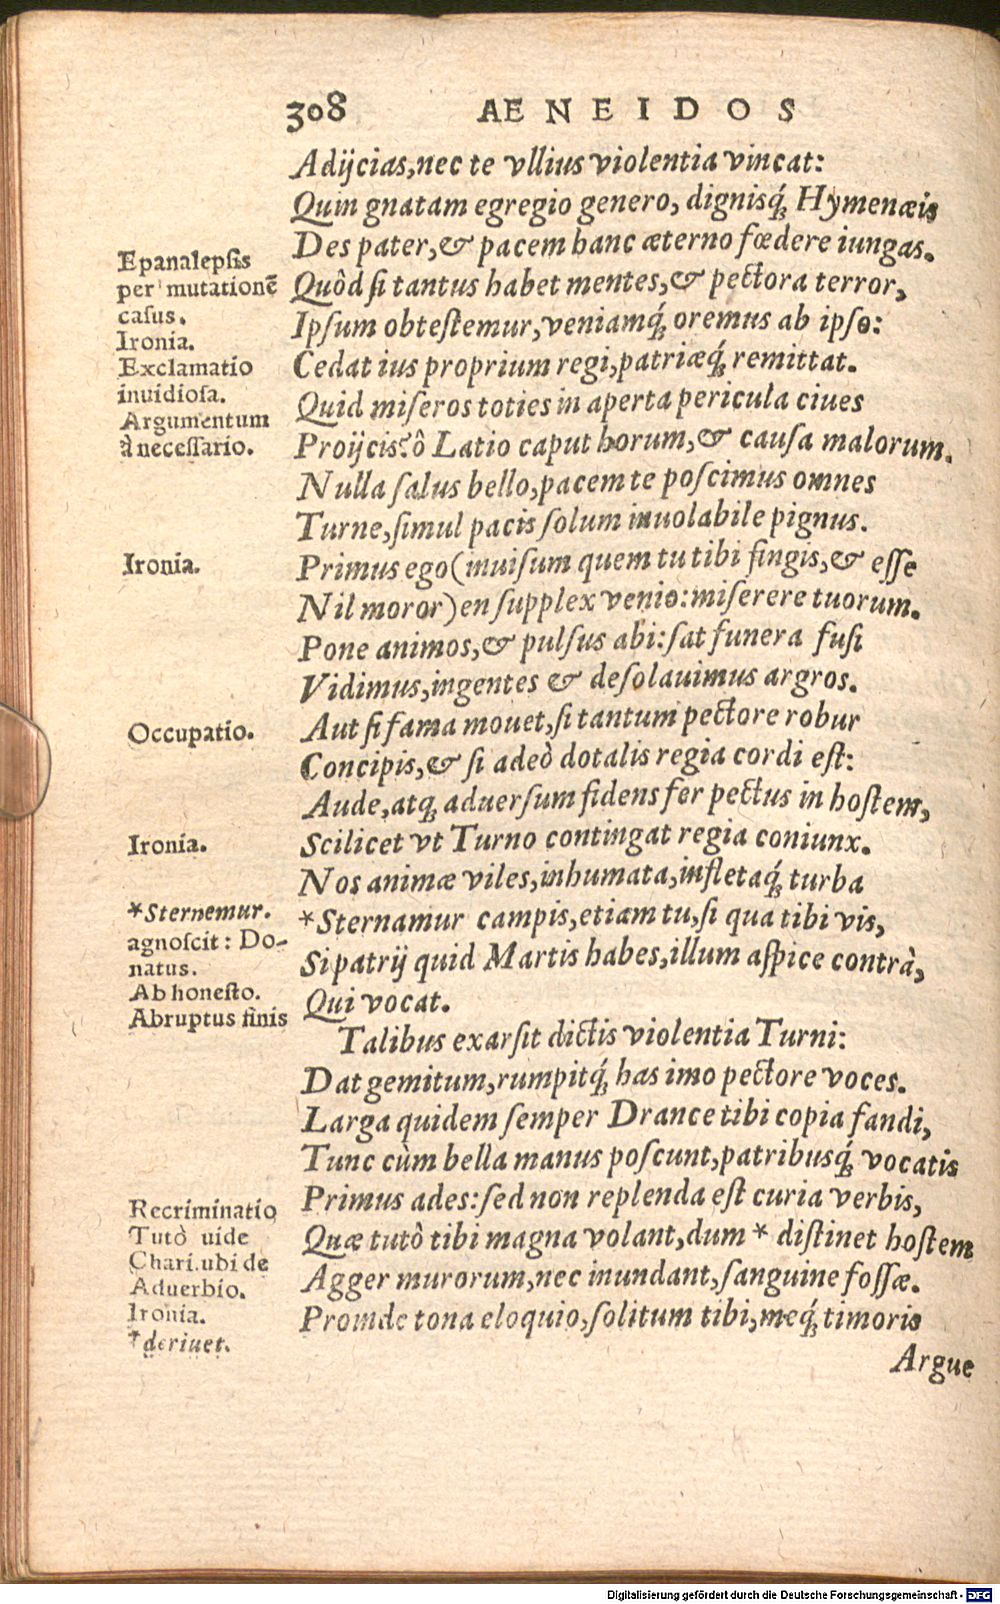 308 AENEIDOS
Adijcias, nec te vllius violentia vincat:
Quin gnatam egregio genero, dignisq́; Hymenæis
Des pater, & pacem hanc æterno fœdere iungas.
Quôd si tantus habet mentes, & pectora terror,
Ipsum obtestemur, veniamq́; oremus ab ipso:
Cedat ius proprium regi, patriæq́; remittat.
Quid miseros toties in aperta pericula ciues
Proijcis? ô Latio caput horum, & causa malorum.
Nulla salus bello, pacem te poscimus omnes
Turne, simul pacis solum inuolabile pignus.
Primus ego (inuisum quem tu tibi fingis, & esse
Nil moror) en supplex venio: miserere tuorum.
Pone animos, & pulsus abi: sat funera fusi
Vidimus, ingentes & desolauimus argros.
Aut si fama mouet, si tantum pectore robur
Concipis, & si adeò dotalis regia cordi est:
Aude, atq; aduersum fidens fer pectus in hostem,
Scilicet vt Turno contingat regia coniunx.
Nos animæ viles, inhumata, infletaq́; turba
*Sternamur campis, etiam tu, si qua tibi vis,
Si patrij quid Martis habes, illum aspice contrà,
Qui vocat.
Talibus exarsit dictis violentia Turni:
Dat gemitum, rumpitq́; has imo pectore voces.
Larga quidem semper Drance tibi copia fandi,
Tunc cùm bella manus poscunt, patribusq́; vocatis
Primus ades: sed non replenda est curia verbis,
Quæ tutô tibi magna volant, dum * distinet hostem
Agger murorum, nec inundant, sanguine fossæ.
Proinde tona eloquio, solitum tibi, meq́; timoris
Argue
Epanalepsis
per mutationē
casus.
Ironia.
Exclamatio
inuidiosa.
Argumentum
à necessario.
Ironia.
Occupatio.
Ironia.
*Sternemur.
agnoscit: Do-
natus.
Ab honesto.
Abruptus finis
Recriminatio
Tutò uide
Chari. ubi de
Aduerbio.
Ironia.
*deriuet.
Digitalisierung gefördert durch die Deutsche Forschungsgemeinschaft - DFG